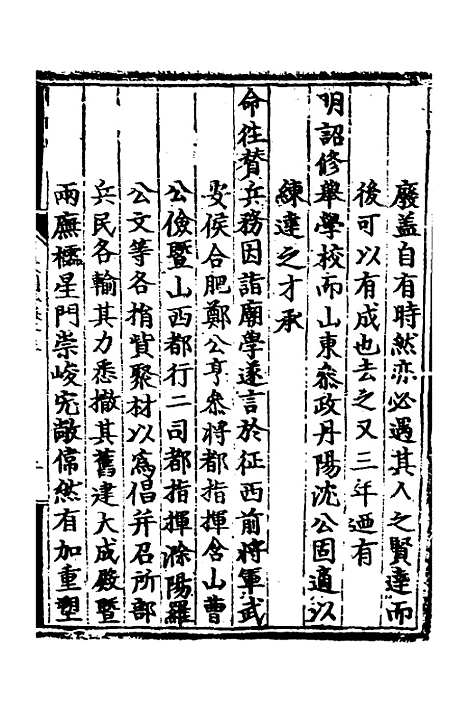 廢蓋自有時然亦必遇其人之賢達而
後可以有成也去之又三年迺有
明詔修舉學校而山東叅政丹陽沈公固適以
練達之才承
命往賛兵務因詣廟學遂言於征西前將軍武
安侯合肥鄭公亨叅將都指揮含山曹
公儉暨山西都行二司都指揮滁陽羅
公文等各捐貲聚材以爲倡并召所部
兵民各輸其力悉撤其舊建大成殿暨
兩廡櫺星門崇峻宏敞偉然有加重塑